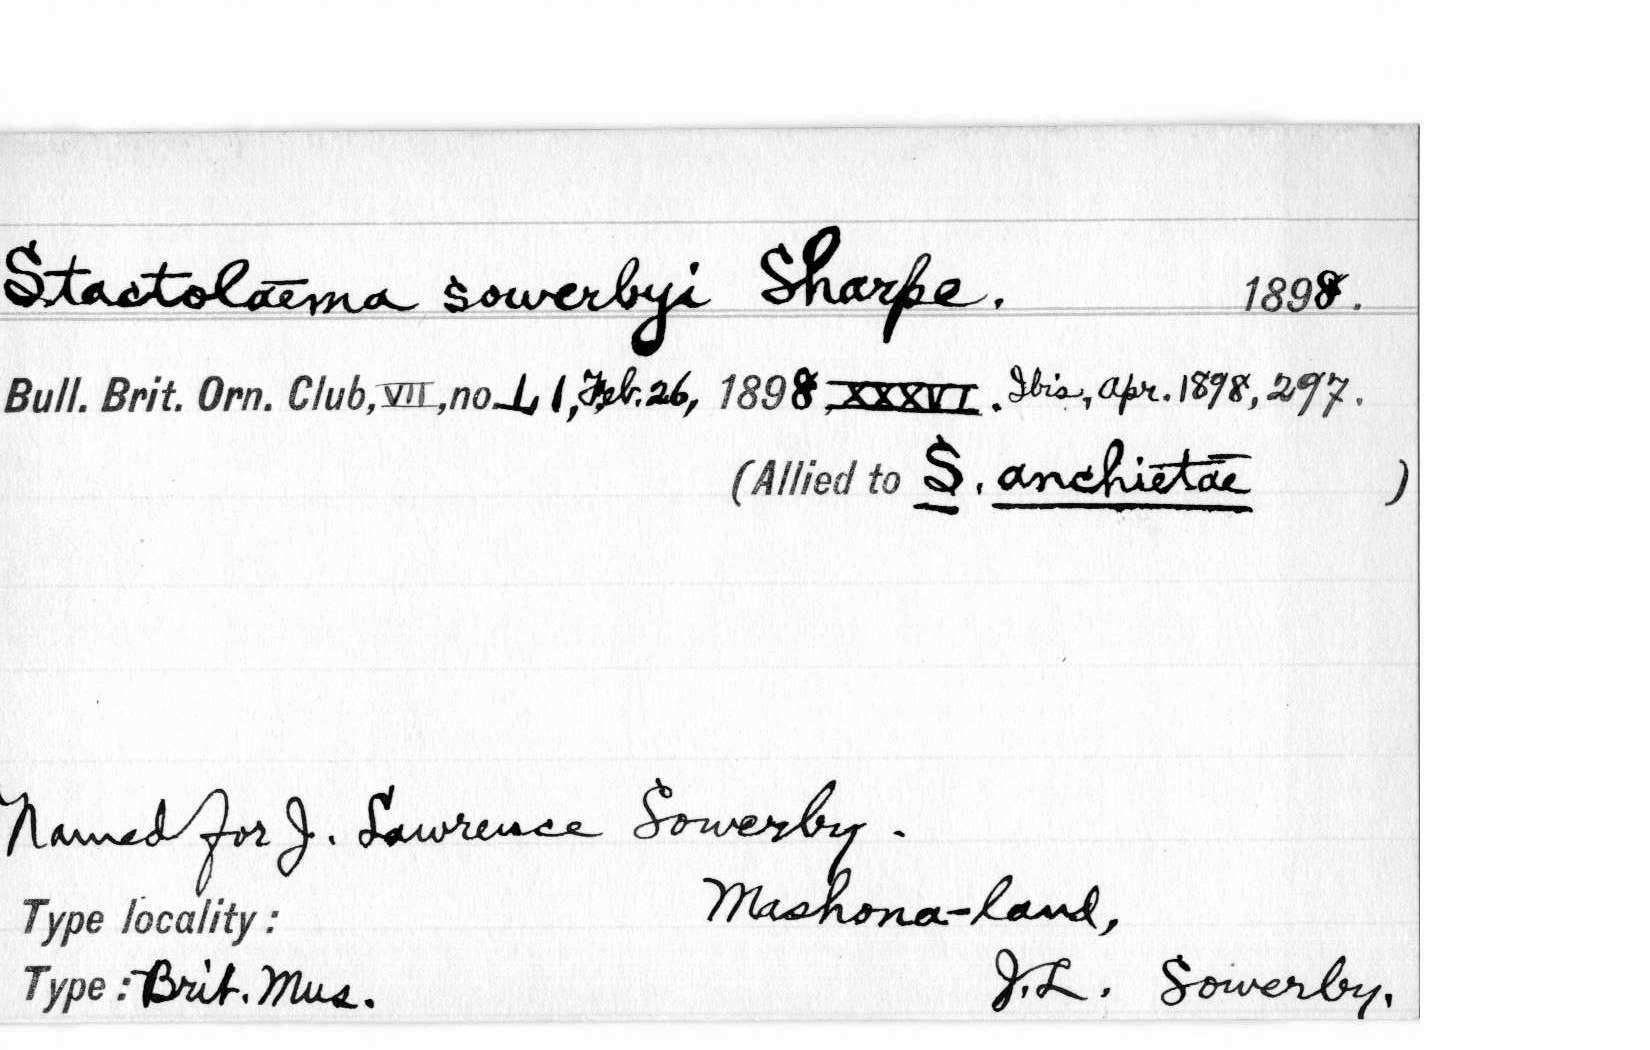 Stactolaema sowerbyi Sharpe. 1898.
Bull. Brit. Orn. Club, VII, no. L I, Feb. 26, 1898, XXXVI. Ibis, Apr. 1898, 297.
(Allied to S. anchietae )
Named for J. Lawrence Sowerby.
Type locality: Mashona-land,
Type: Brit. Mus. J. L. Sowerby.